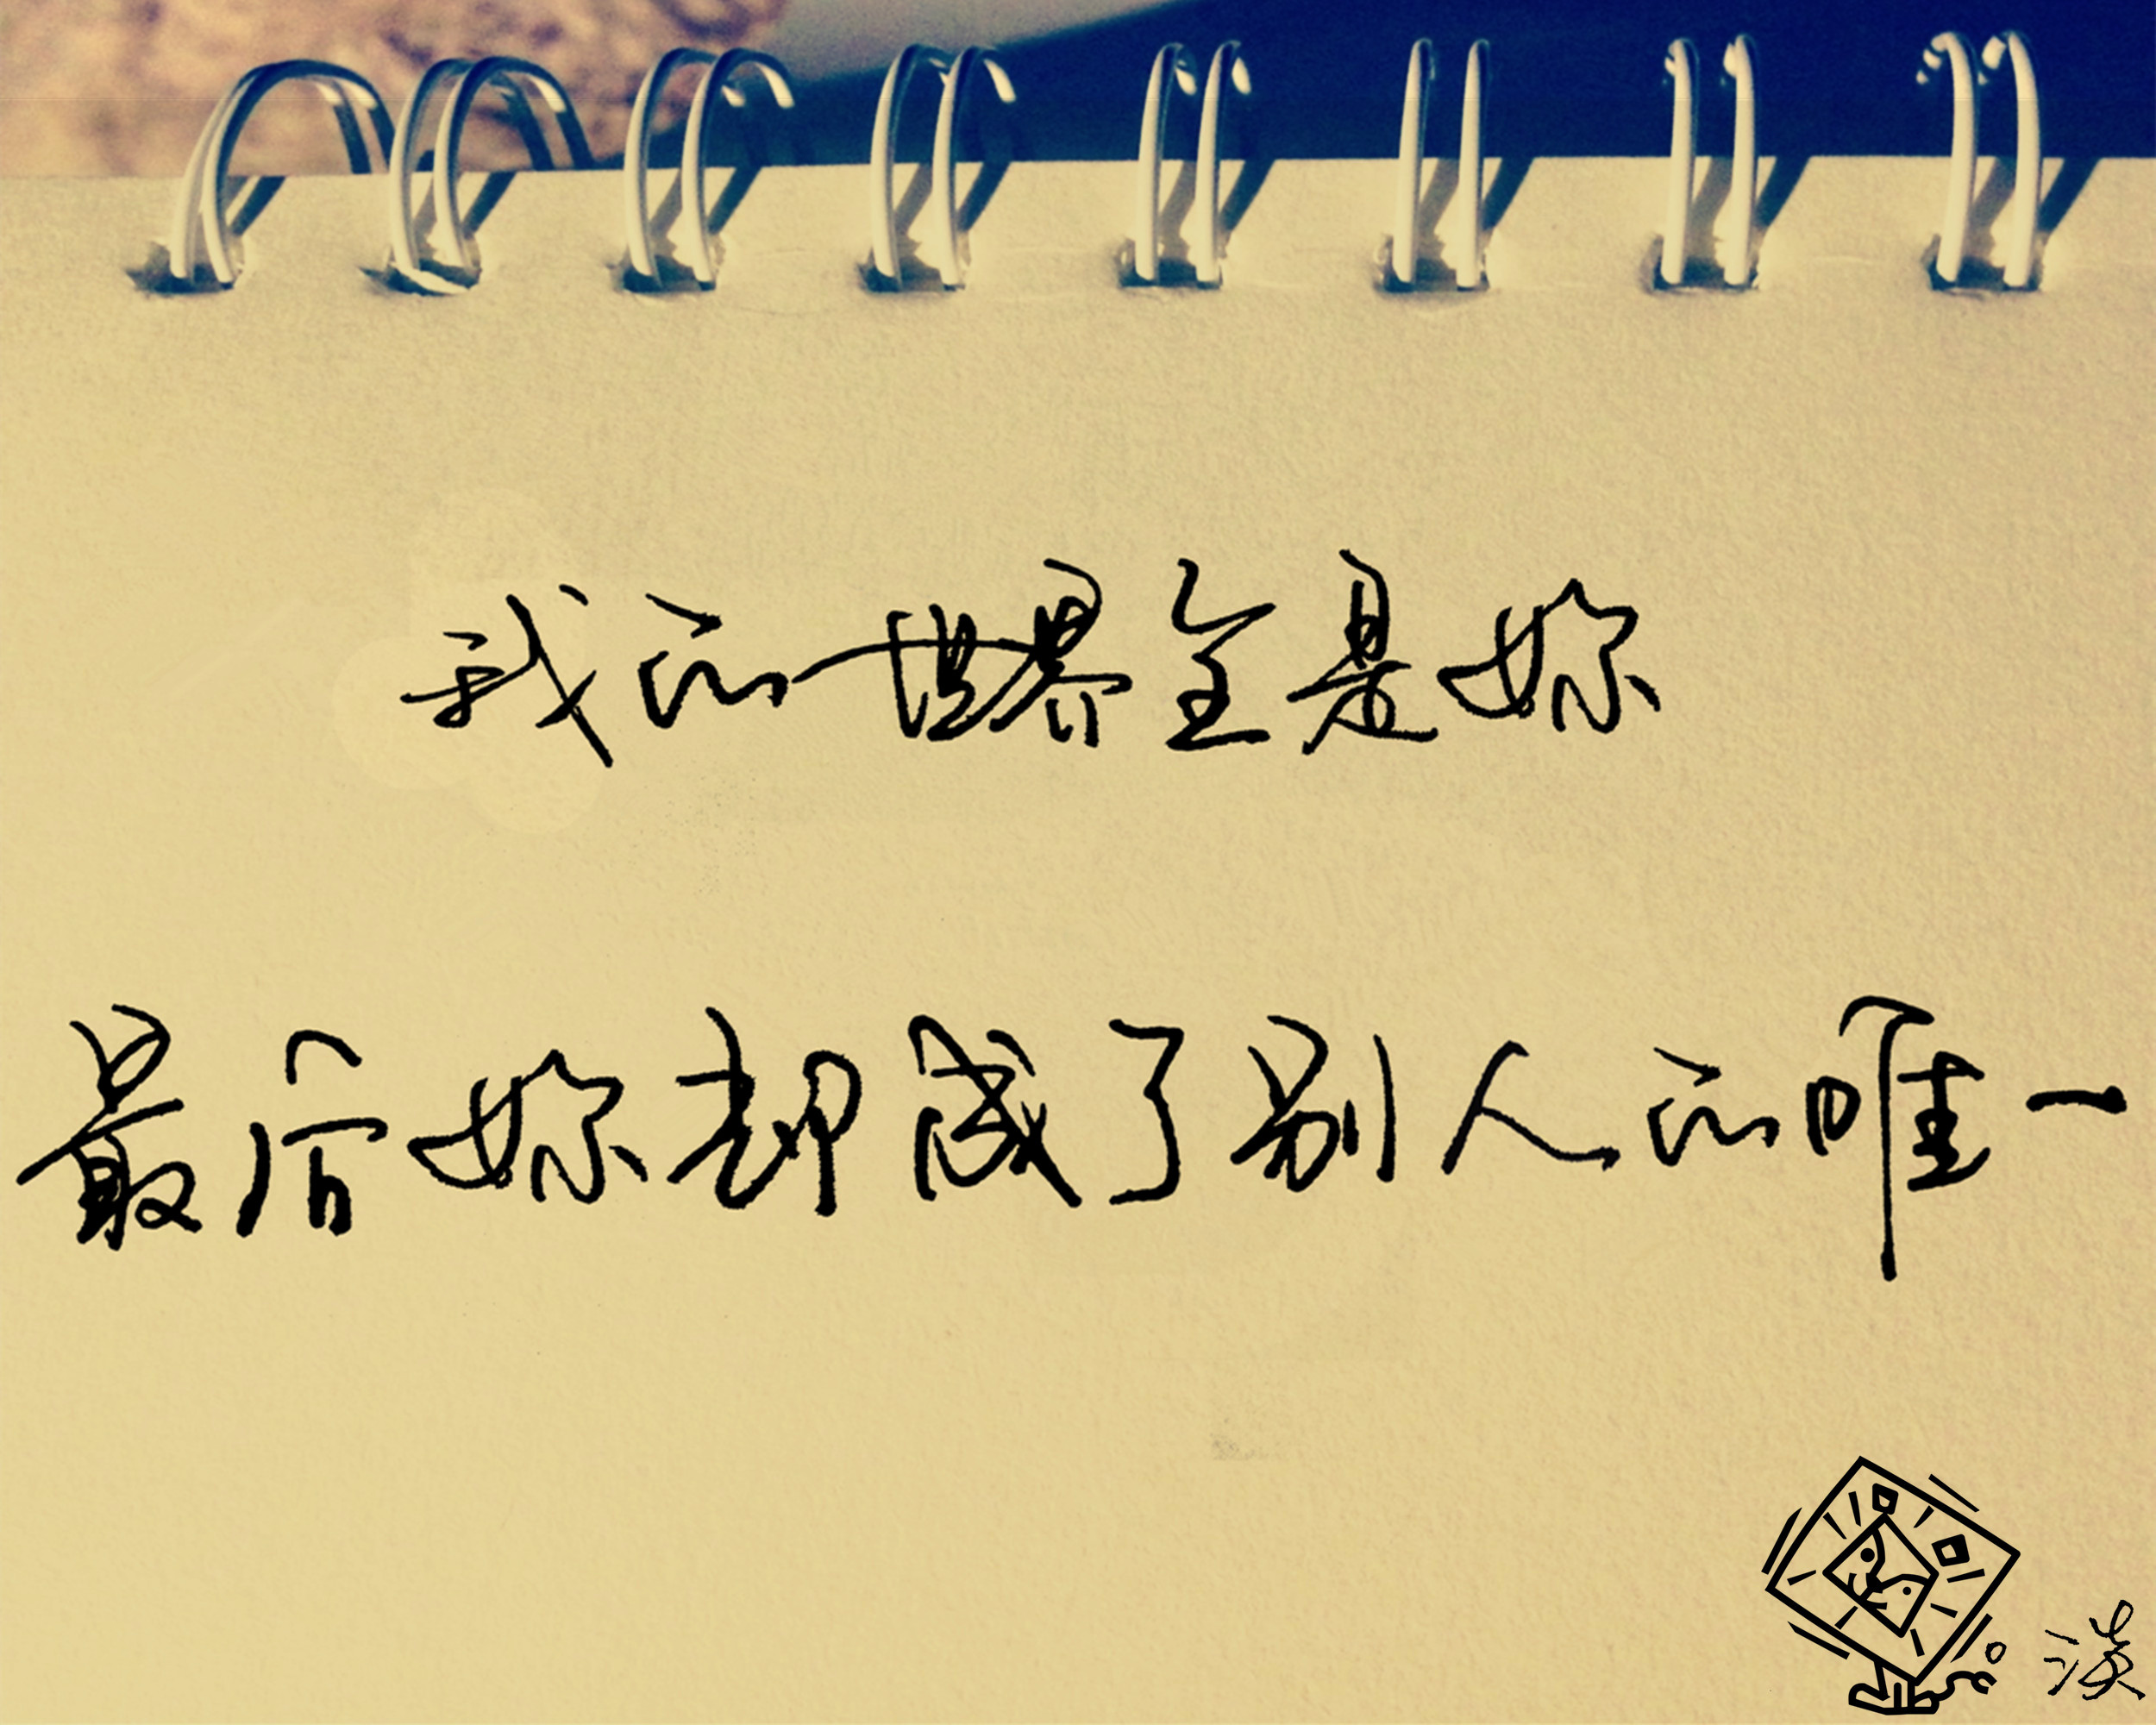 我的世界全是妳
最后妳却成了别人的唯一
淡